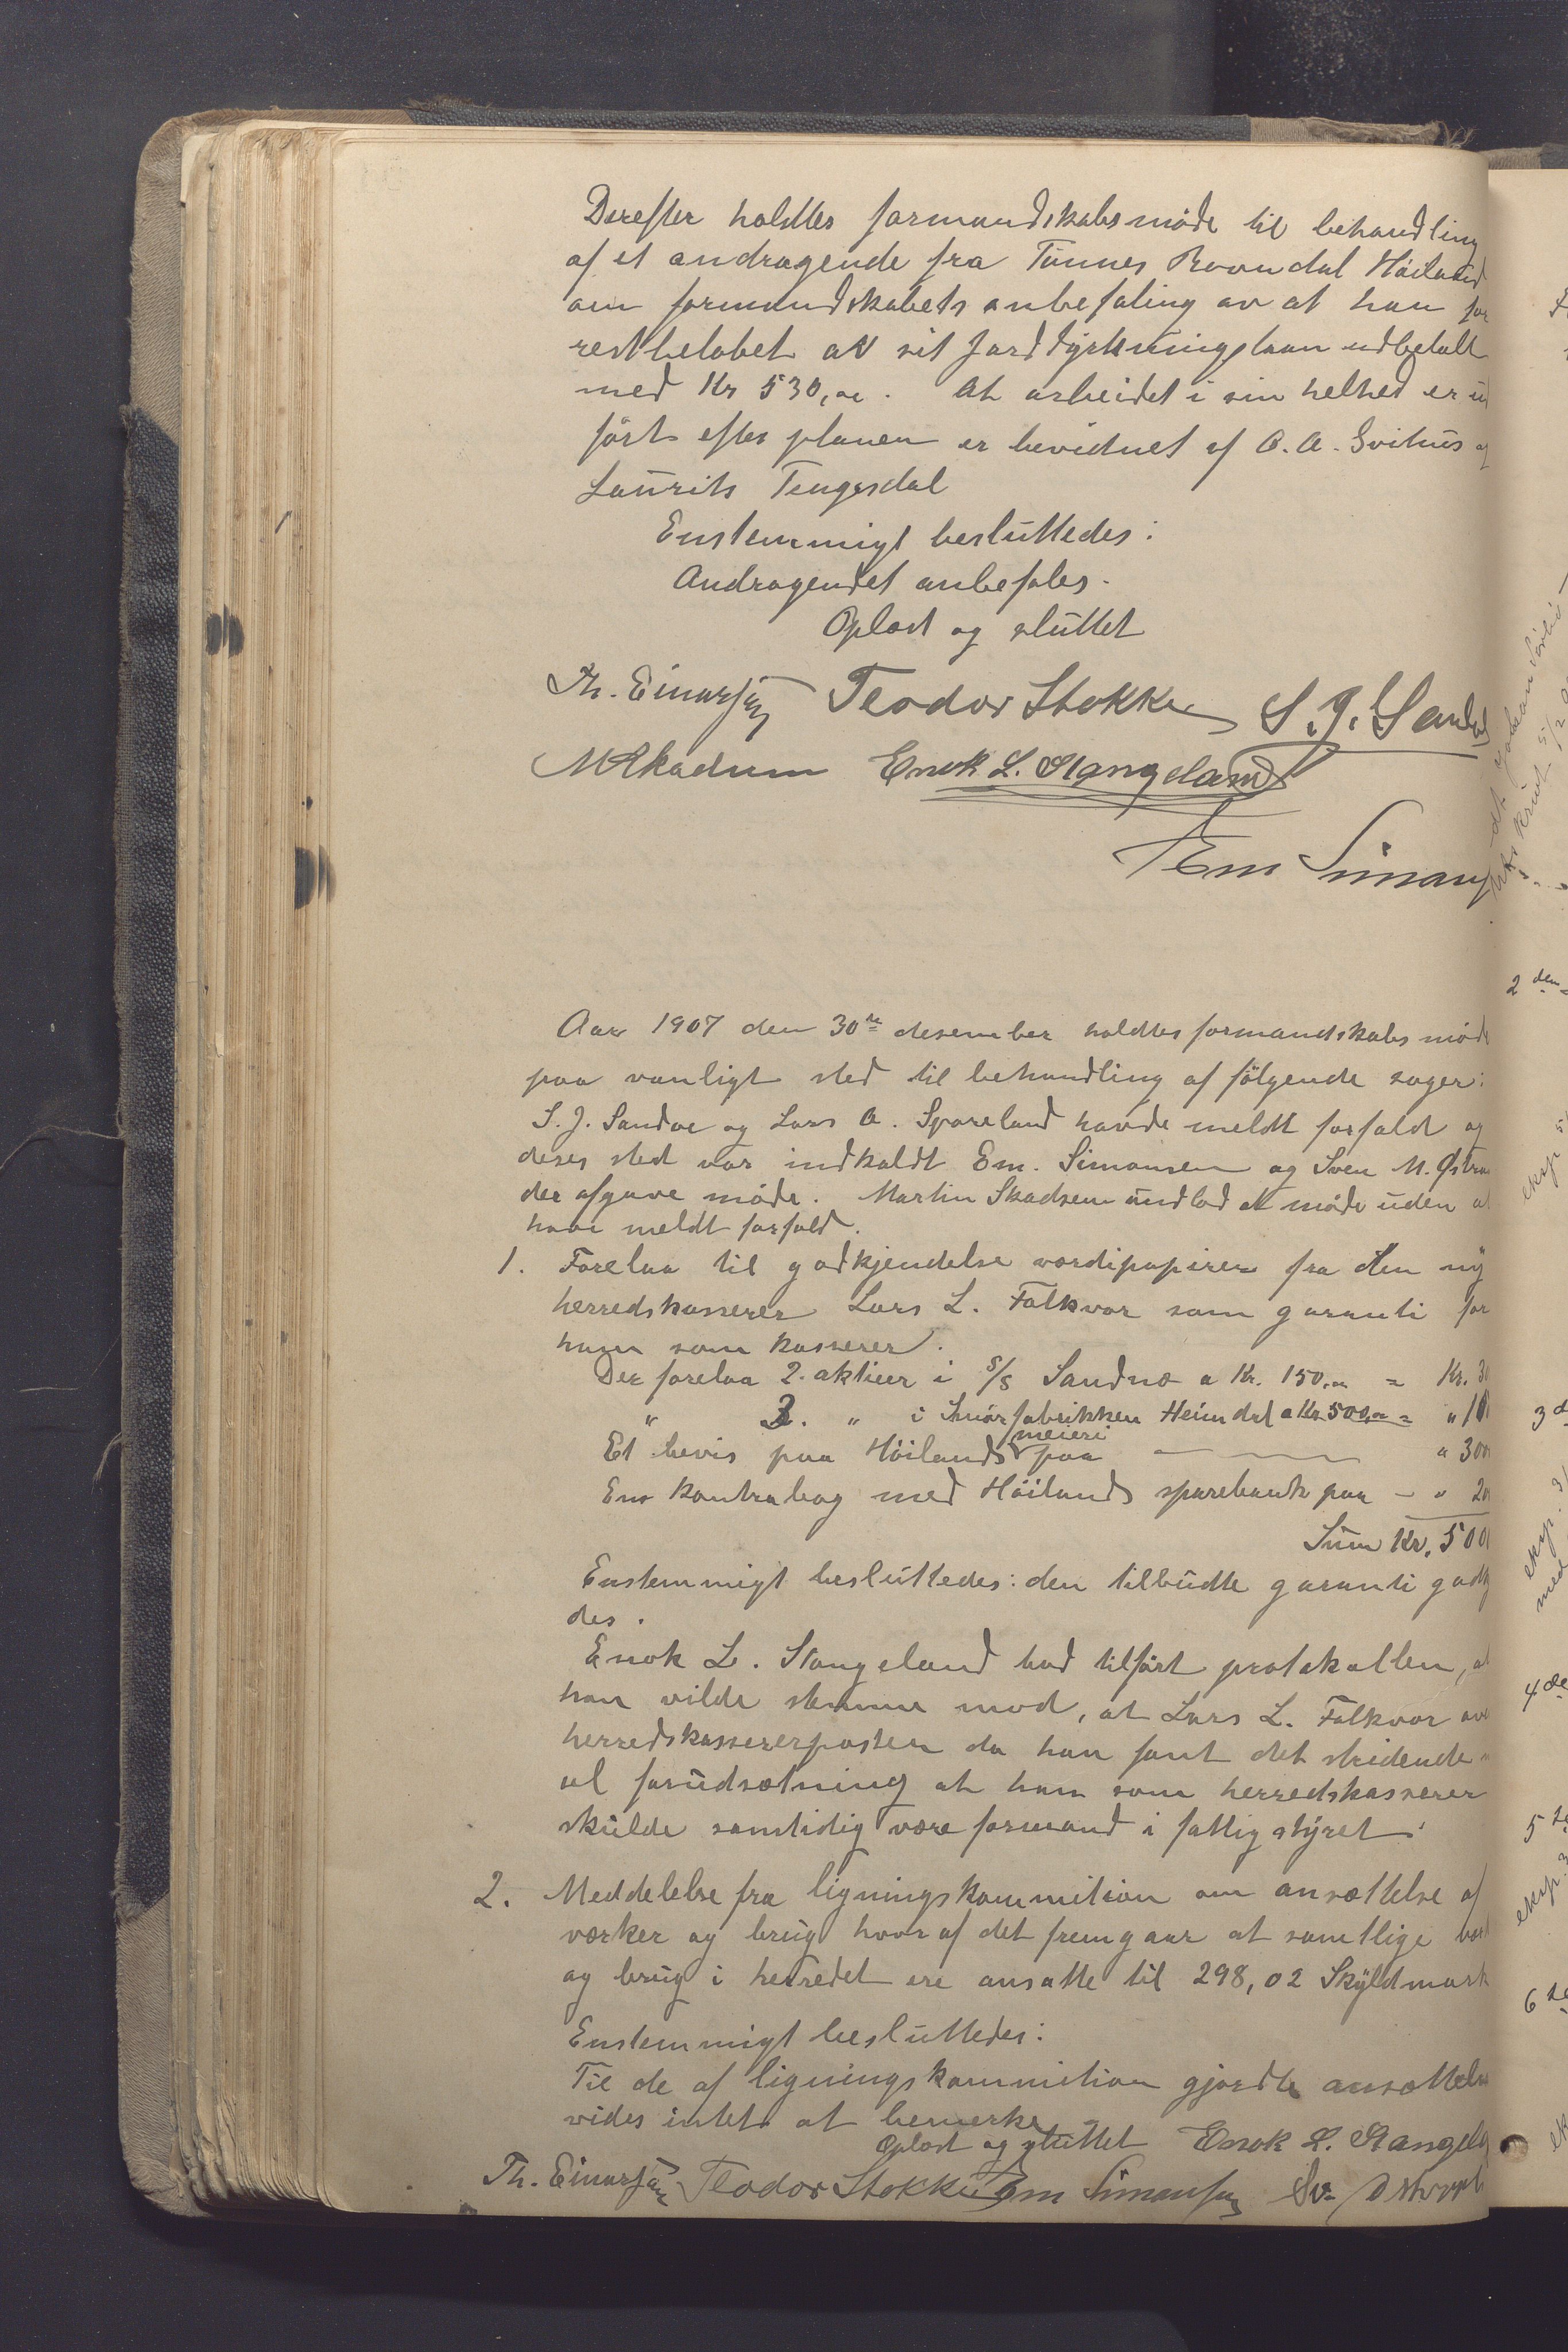 Derefter holdtes formandskabsmøde til behandling
af et andragende fra Tønnes Rovndal Höiland
om formandskabets anbefaling av at han for
restbeløbet av sit Jorddÿrkningslaan udbetalt
med Kr 530,00. At arbeidet i sin helhed er ud
ført efter planen er bevidnet af O. A. Svihus og
Laurits Tengesdal
Enstemmigt besluttedes:
Andragendet anbefales.
Oplæst og sluttet
Th. Einarsen Teodor Stokke S. J. Sandve
M Skadsem Enok L. Stangeland
Em Simons
Aar 1907 den 30te desember holdtes formandskabs møde
paa vanligt sted til behandling af følgende sager:
S. J. Sandve og Lars A. Spareland havde meldt forfald og
deres sted var indkaldt Em. Simonsen og Sven M. Østra
der afgave møde. Martin Skadsem undlod at møde uden at
have meldt forfald.
1. Forelaa til godkjendelse værdipapirer fra den ny
herredskasserer Lars L. Folkvor som garanti for
ham som kasserer.
Der forelaa 2. aktier i S/S Sandnæs a Kr. 150,00 = Kr. 30
" 2. " i Smørfabrikken Heimdal a Kr. 500,00 = " 100
Et bevis paa Höilands meieri paa " 300
En kontrabog med Höilands sparebank paa - " 20
Sum Kr. 500
Enstemmigt besluttedes: den tilbudte garanti godkj
des.
Enok L. Stangeland bad tilført protokollen, at
han vilde stemme mod, at Lars L. Folkvor
herredskassererposten da han fant det stridende
al forudsætning at han som herredskasserer
skulde samtidig være formand i fattigstyret.
2. Meddelelse fra ligningskommition om ansættelse af
værker og brug hvoraf det fremgaar at samtlige
og brug i herredet ere ansatte til 298,02 Skÿldmark
Enstemmigt besluttedes:
Til de af ligningskommition gjordte ansættelse
vides intet at bemerke
Oplæst og sluttet Enok L. Stangela
Th. Einarsen Teodor Stokke Em Simonsen Sv.
2 den
3 d
4 de
5 te
6 te